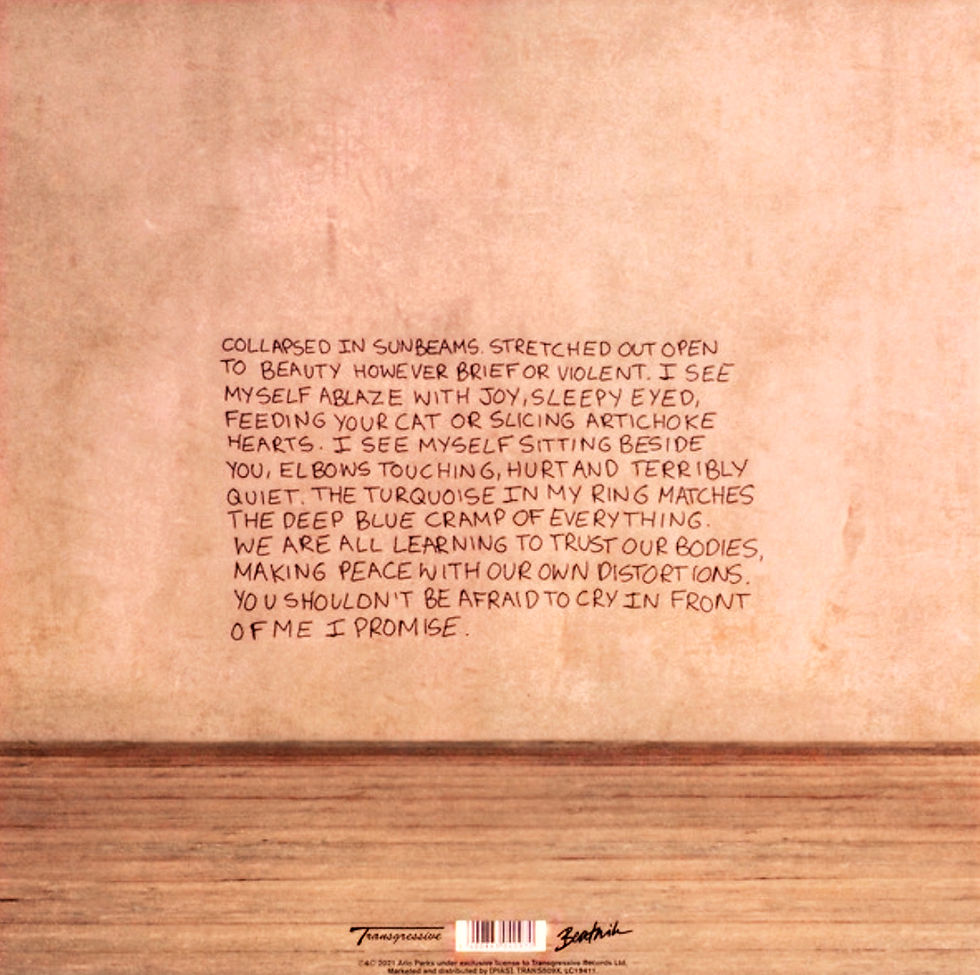 COLLAPSED IN SUNBEAMS. STRETCHED OUT OPEN
TO BEAUTY HOWEVER BRIEF OR VIOLENT. I SEE
MYSELF ABLAZE WITH JOY, SLEEPY EYED,
FEEDING YOUR CAT OR SLICING ARTICHOKE
HEARTS. I SEE MYSELF SITTING BESIDE
YOU, ELBOWS TOUCHING, HURT AND TERRIBLY
QUIET. THE TURQUOISE IN MY RING MATCHES
THE DEEP BLUE CRAMP OF EVERYTHING.
WE ARE ALL LEARNING TO TRUST OUR BODIES,
MAKING PEACE WITH OUR OWN DISTORTIONS.
YOU SHOULDN'T BE AFRAID TO CRY IN FRONT
OF ME I PROMISE.
Transgressive
Beatnik
℗&© 2021 Arlo Parks under exclusive license to Transgressive Records Ltd.
Marketed and distributed by [PIAS]. TRANS509X. LC19411.